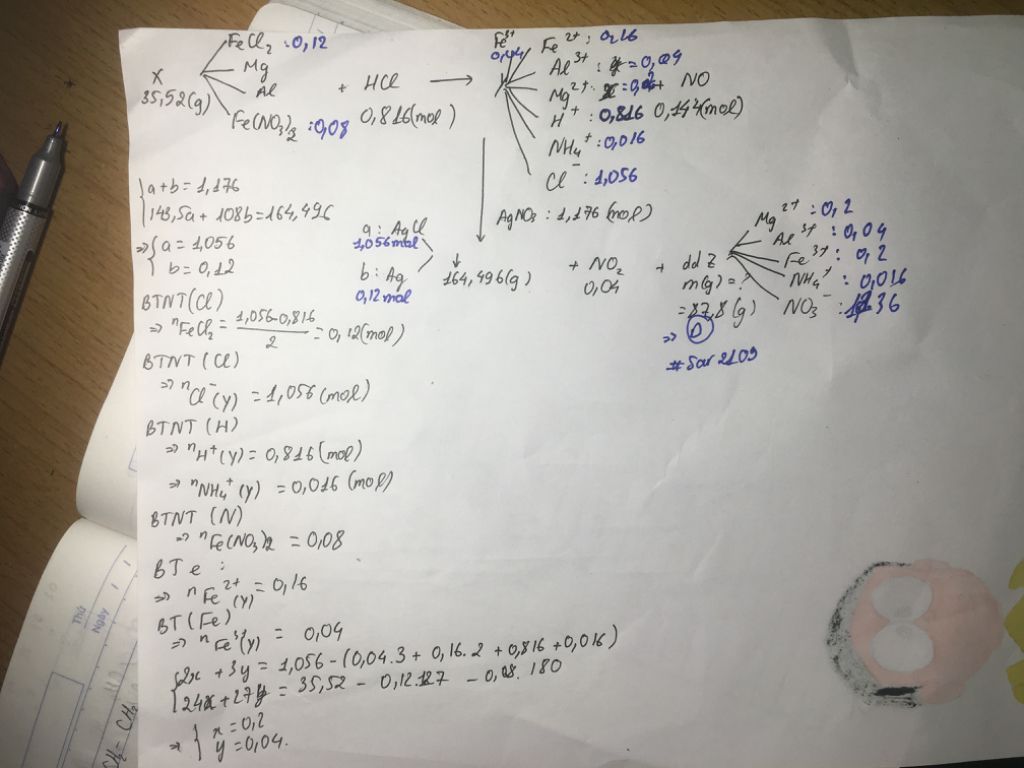 FeCl2 : 0,12
Mg
X
Al
35,52(g)
Fe(NO3)2 : 0,08
+ HCl
0,816(mol)
Fe3+
0,04
Fe2+ : 0,16
Al3+ : 0,04
Mg2+
+ NO
0,144(mol)
H+ : 0,816
NH4+ : 0,016
Cl- : 1,056
AgNO3 : 1,176(mol)
a+b = 1,176
143,5a + 108b = 164,496
=> a = 1,056
b = 0,12
a : AgCl
1,056mol
b : Ag
0,12mol
164,496(g)
+ NO2
0,04
+ dd Z
m(g) = ?
= 87,8(g)
=> D
#Sar2109
Mg2+ : 0,2
Al3+ : 0,04
Fe3+ : 0,2
NH4+ : 0,016
NO3-
BTNT(Cl)
=> nFeCl2 = 1,056-0,816 / 2 = 0,12(mol)
BTNT (Cl)
=> nCl-(y) = 1,056(mol)
BTNT (H)
=> nH+(y) = 0,816(mol)
=> nNH4+(y) = 0,016(mol)
BTNT (N)
=> nFe(NO3)2 = 0,08
BTe :
=> nFe2+(y) = 0,16
BT(Fe)
=> nFe3+(y) = 0,04
2x + 3y = 1,056 - (0,04.3 + 0,16.2 + 0,816 + 0,016)
24x + 27y = 35,52 - 0,12.127 - 0,08.180
=> x = 0,2
y = 0,04.
Thứ
Ngày